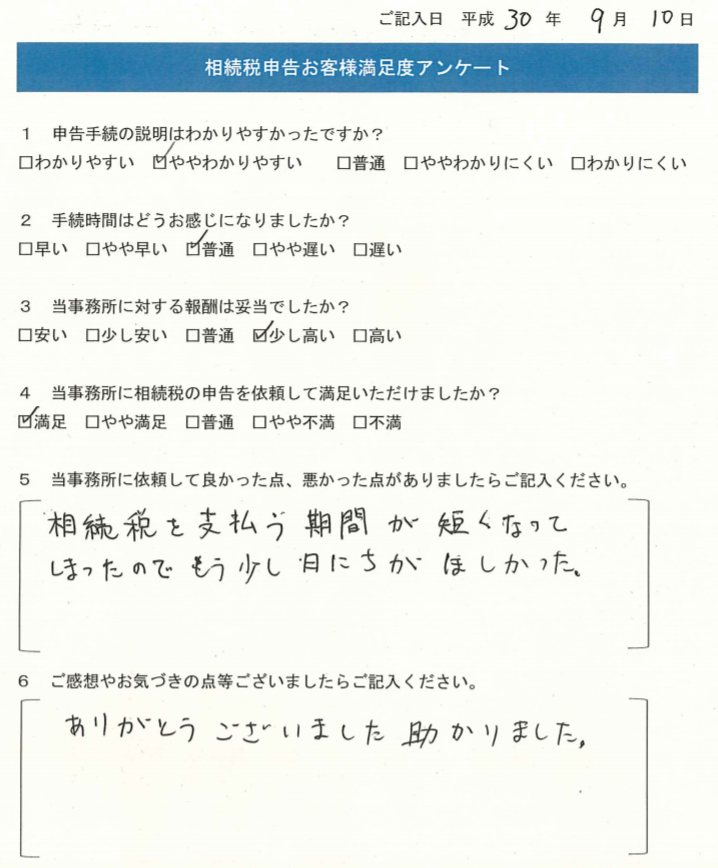 ご記入日 平成 30 年 9 月 10 日
相続税申告お客様満足度アンケート
1 申告手続の説明はわかりやすかったですか？
□わかりやすい ☑ややわかりやすい □普通 □ややわかりにくい □わかりにくい
2 手続時間はどうお感じになりましたか？
□早い □やや早い ☑普通 □やや遅い □遅い
3 当事務所に対する報酬は妥当でしたか？
□安い □少し安い □普通 ☑少し高い □高い
4 当事務所に相続税の申告を依頼して満足いただけましたか？
☑満足 □やや満足 □普通 □やや不満 □不満
5 当事務所に依頼して良かった点、悪かった点がありましたらご記入ください。
相続税を支払う期間が短くなって
しまったのでもう少し日にちがほしかった。
6 ご感想やお気づきの点等ございましたらご記入ください。
ありがとうございました助かりました。